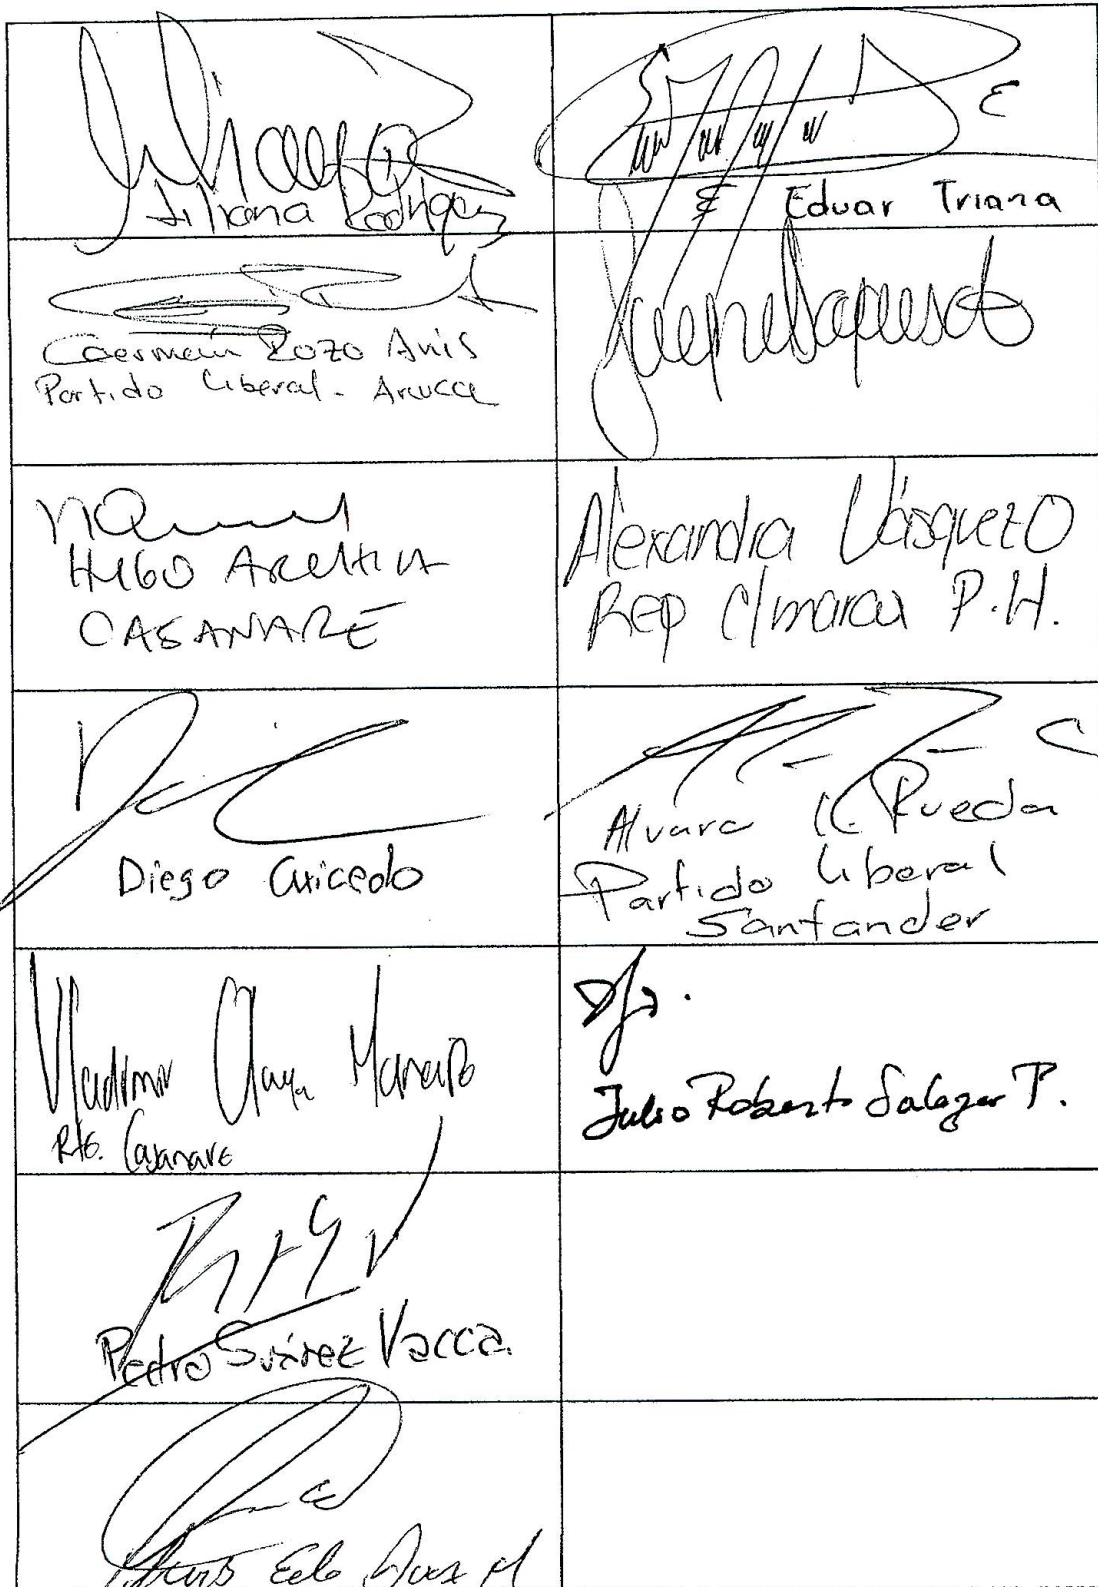 Liliana Rodríguez
Eduar Triana
Germán Rozo Anís
Partido Liberal - Arauca
HUGO ARCHILA
CASANARE
Alexandra Vásquez O
Rep C/marca P.H.
Diego Caicedo
Alvaro L. Rueda
Partido Liberal
Santander
Vladimir Olaya Mancipe
Rte. Casanare
Julio Roberto Salazar P.
Pedro Suárez Vacca.